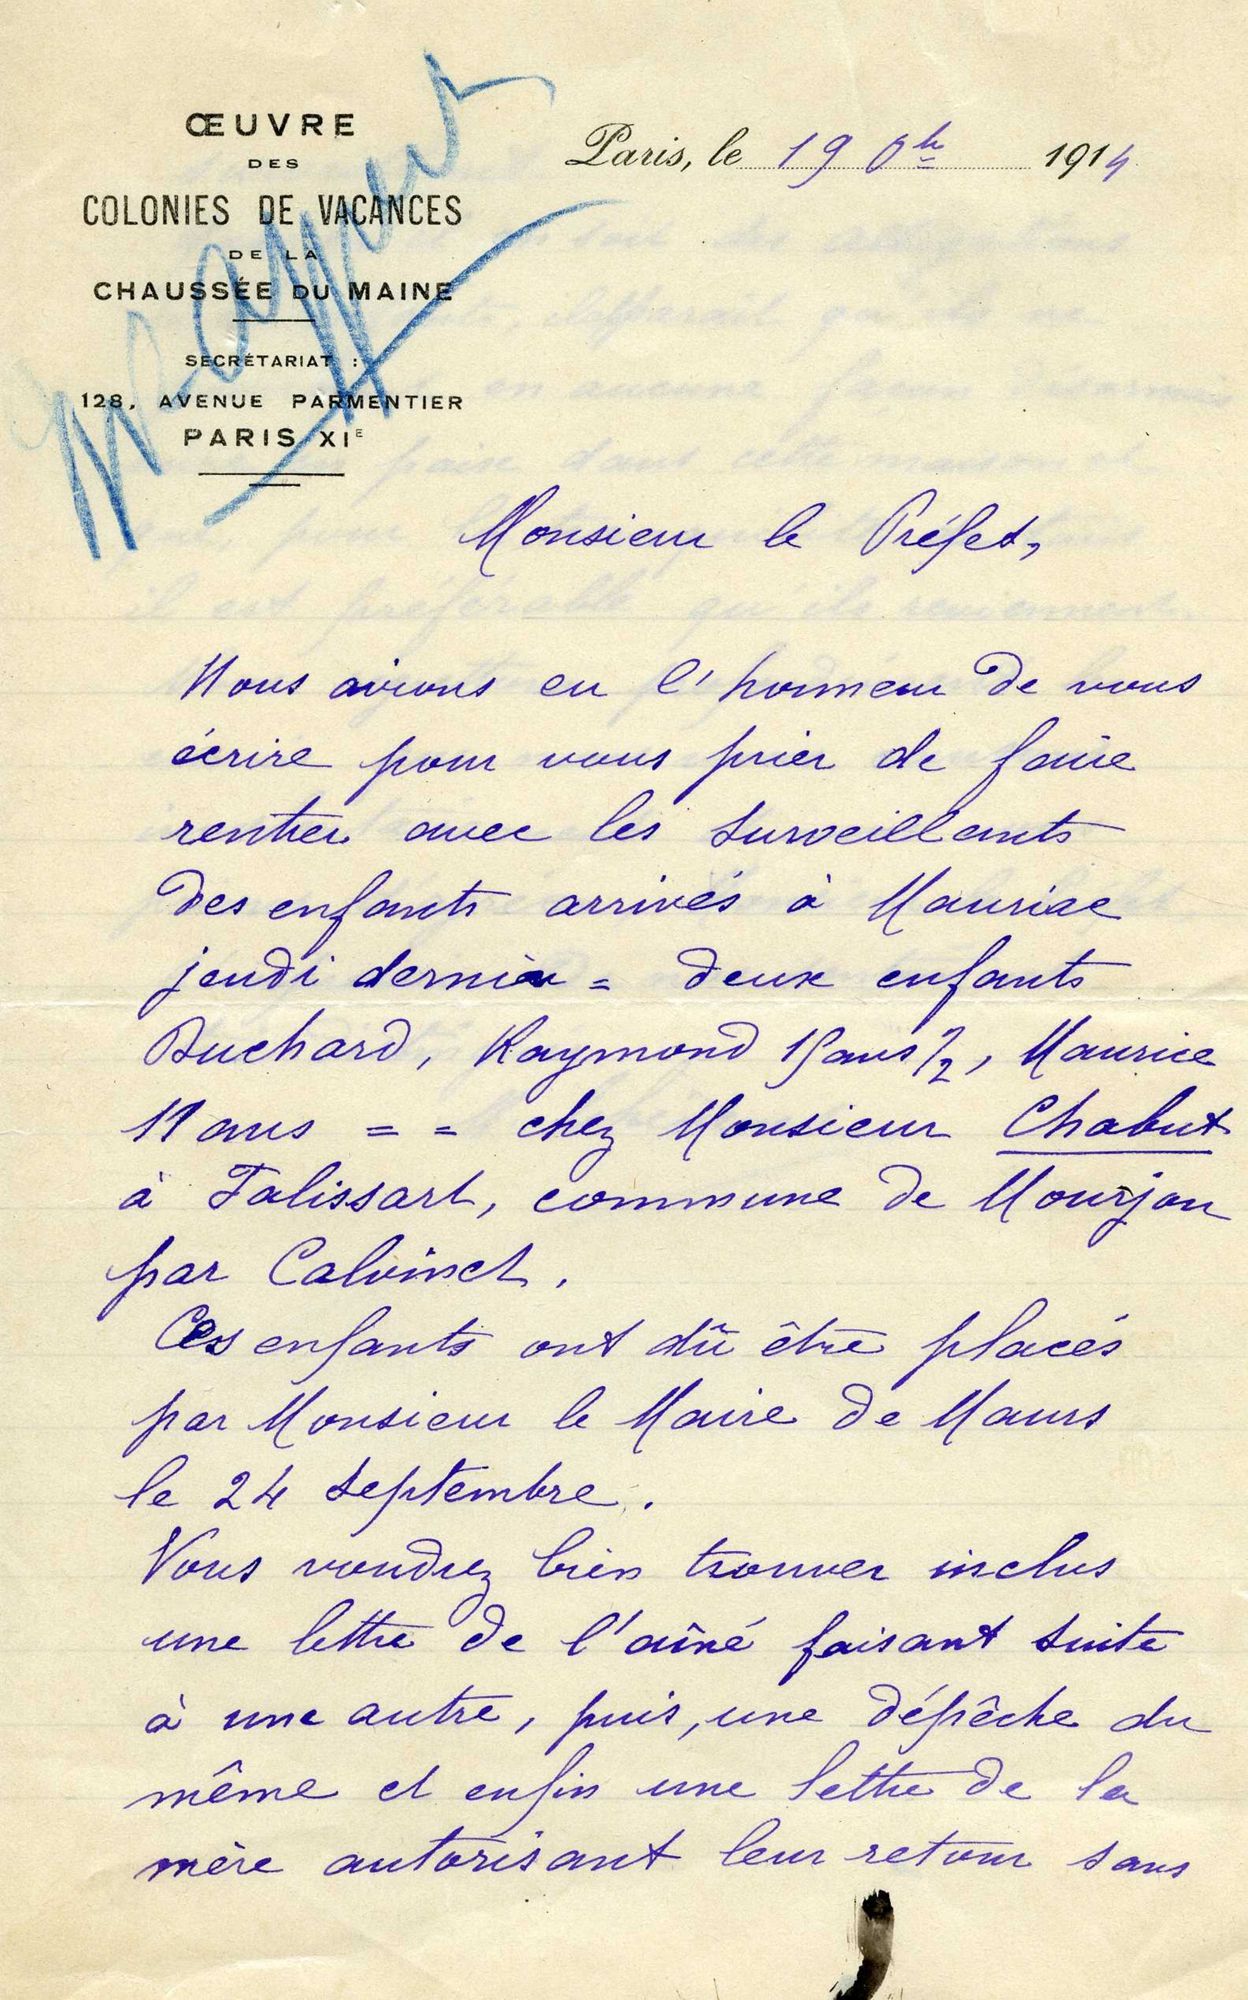 ŒUVRE
DES
COLONIES DE VACANCES
DE LA
CHAUSSÉE DU MAINE
SECRÉTARIAT :
128, AVENUE PARMENTIER
PARIS XIE
Paris, le 19 8bre 1914
Monsieur le Préfet,
Nous avions eu l'honneur de vous
écrire pour vous prier de faire
rentrer avec les surveillants
des enfants arrivés à Mauriac
jeudi dernier = deux enfants
Buchard, Raymond 15 ans 1/2, Maurice
11 ans = = chez Monsieur Chabut
à Talissart, commune de Mourjou
par Calvinet.
Ces enfants ont dû être placés
par Monsieur le Maire de Maurs
le 24 septembre.
Vous voudrez bien trouver inclus
une lettre de l'aîné faisant suite
à une autre, puis, une dépêche du
même et enfin une lettre de la
mère autorisant leur retour sans